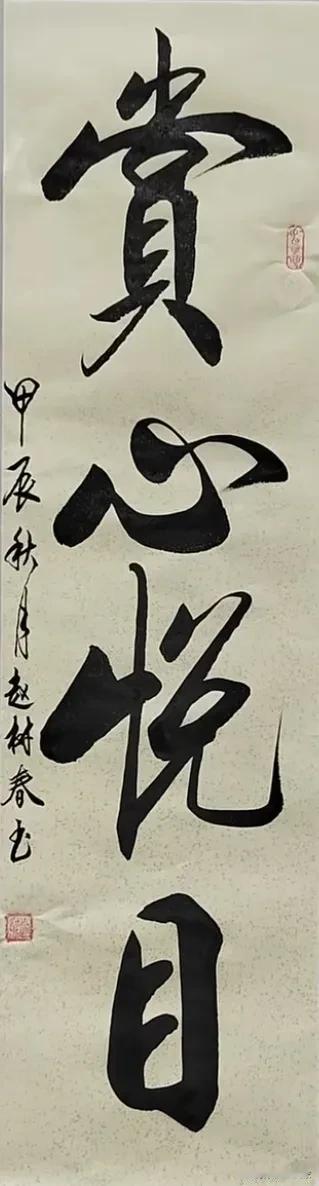 赏心悦目
甲辰秋月赵树春书